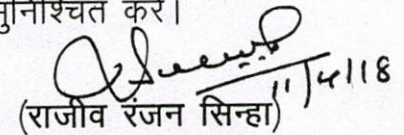 सुनिश्चित करें।
11/4/18
(राजीव रंजन सिन्हा)